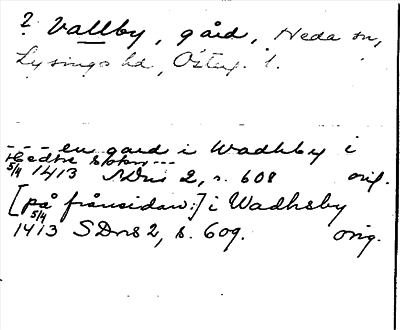 ? Vallby, gård, Heda sn,
Lysings hd, Österg. l.
--- en gard i Wadhby i
Hedhe sokn ---
5/4 1413 SDns 2, s. 608 orig.
[på frånsidan:] i Wadhsby
5/4 1413 SDns 2, s. 609. orig.